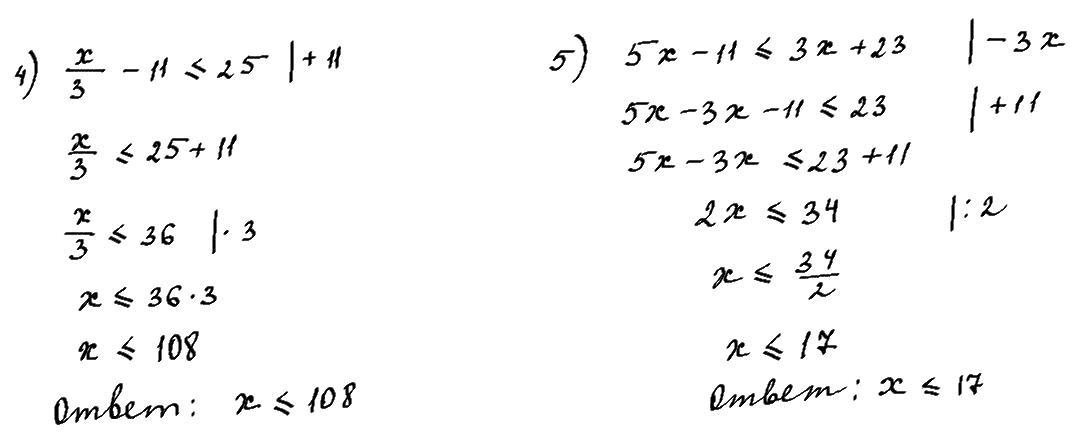 4) x/3 - 11 ⩽ 25 | + 11
x/3 ⩽ 25 + 11
x/3 ⩽ 36 | · 3
x ⩽ 36 · 3
x ⩽ 108
Ответ: x ⩽ 108
5) 5x - 11 ⩽ 3x + 23 | - 3x
5x - 3x - 11 ⩽ 23 | + 11
5x - 3x ⩽ 23 + 11
2x ⩽ 34 | : 2
x ⩽ 34/2
x ⩽ 17
Ответ: x ⩽ 17